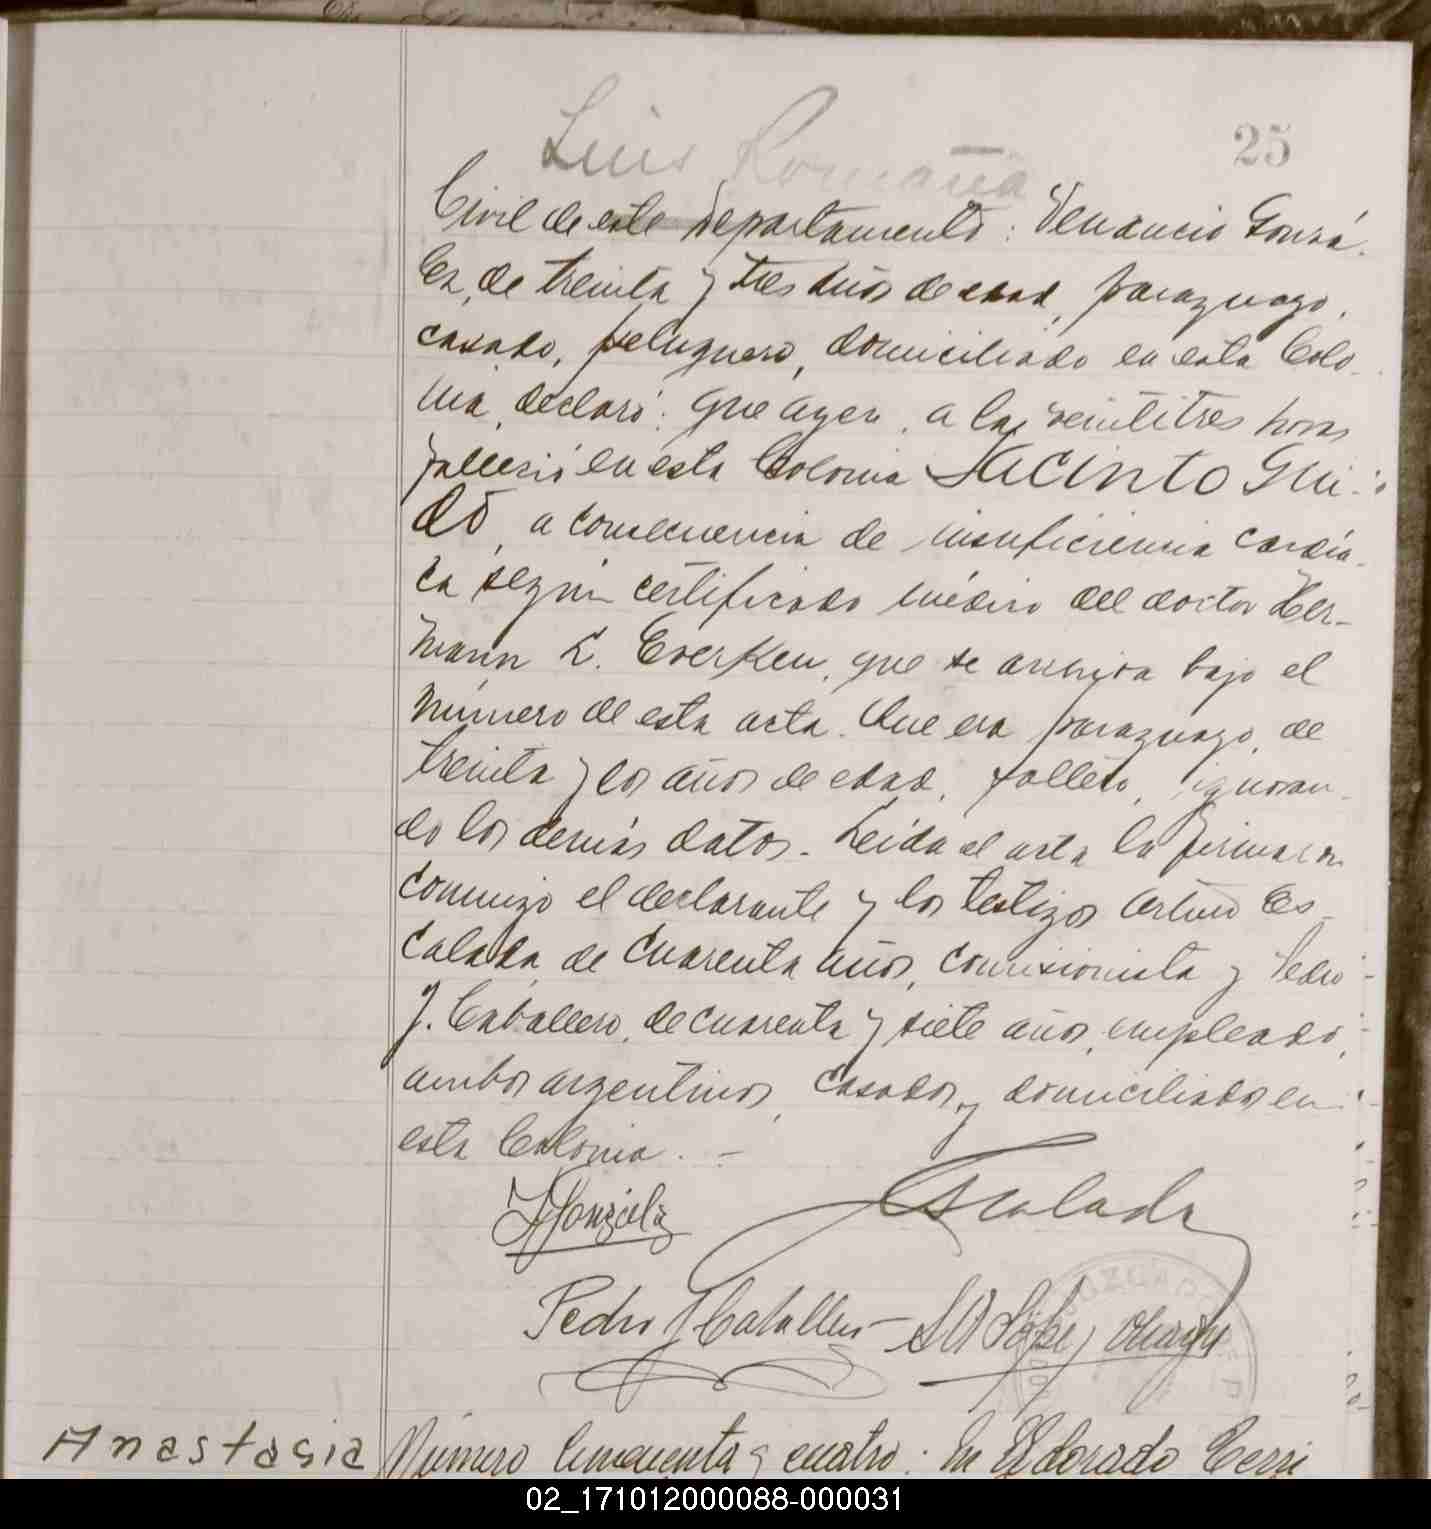 Luis Romaña
25
Civil de este departamento: Venancio Gonzá-
lez, de treinta y tres años de edad, paraguayo,
casado, peluquero, domiciliado en esta Colo-
nia, declaró: Que ayer, a las veintitres horas
falleció en esta Colonia Jacinto Gui-
do, a consecuencia de insuficiencia cardía-
ca según certificado médico del doctor Her-
mann L. Everken, que se archiva bajo el
número de esta acta. Que era paraguayo, de
treinta y dos años de edad, soltero, ignoran-
do los demás datos. Leída el acta la firmaron
conmigo el declarante y los testigos Arturo Es-
calada, de cuarenta años, comisionista y Pedro
J. Caballero, de cuarenta y siete años, empleado,
ambos argentinos, casados, y domiciliados en
esta Colonia. -
VGonzález Escalada
Pedro J Caballero
Anastasia Número Cincuenta y cuatro: En Eldorado Terri
02_171012000088-000031